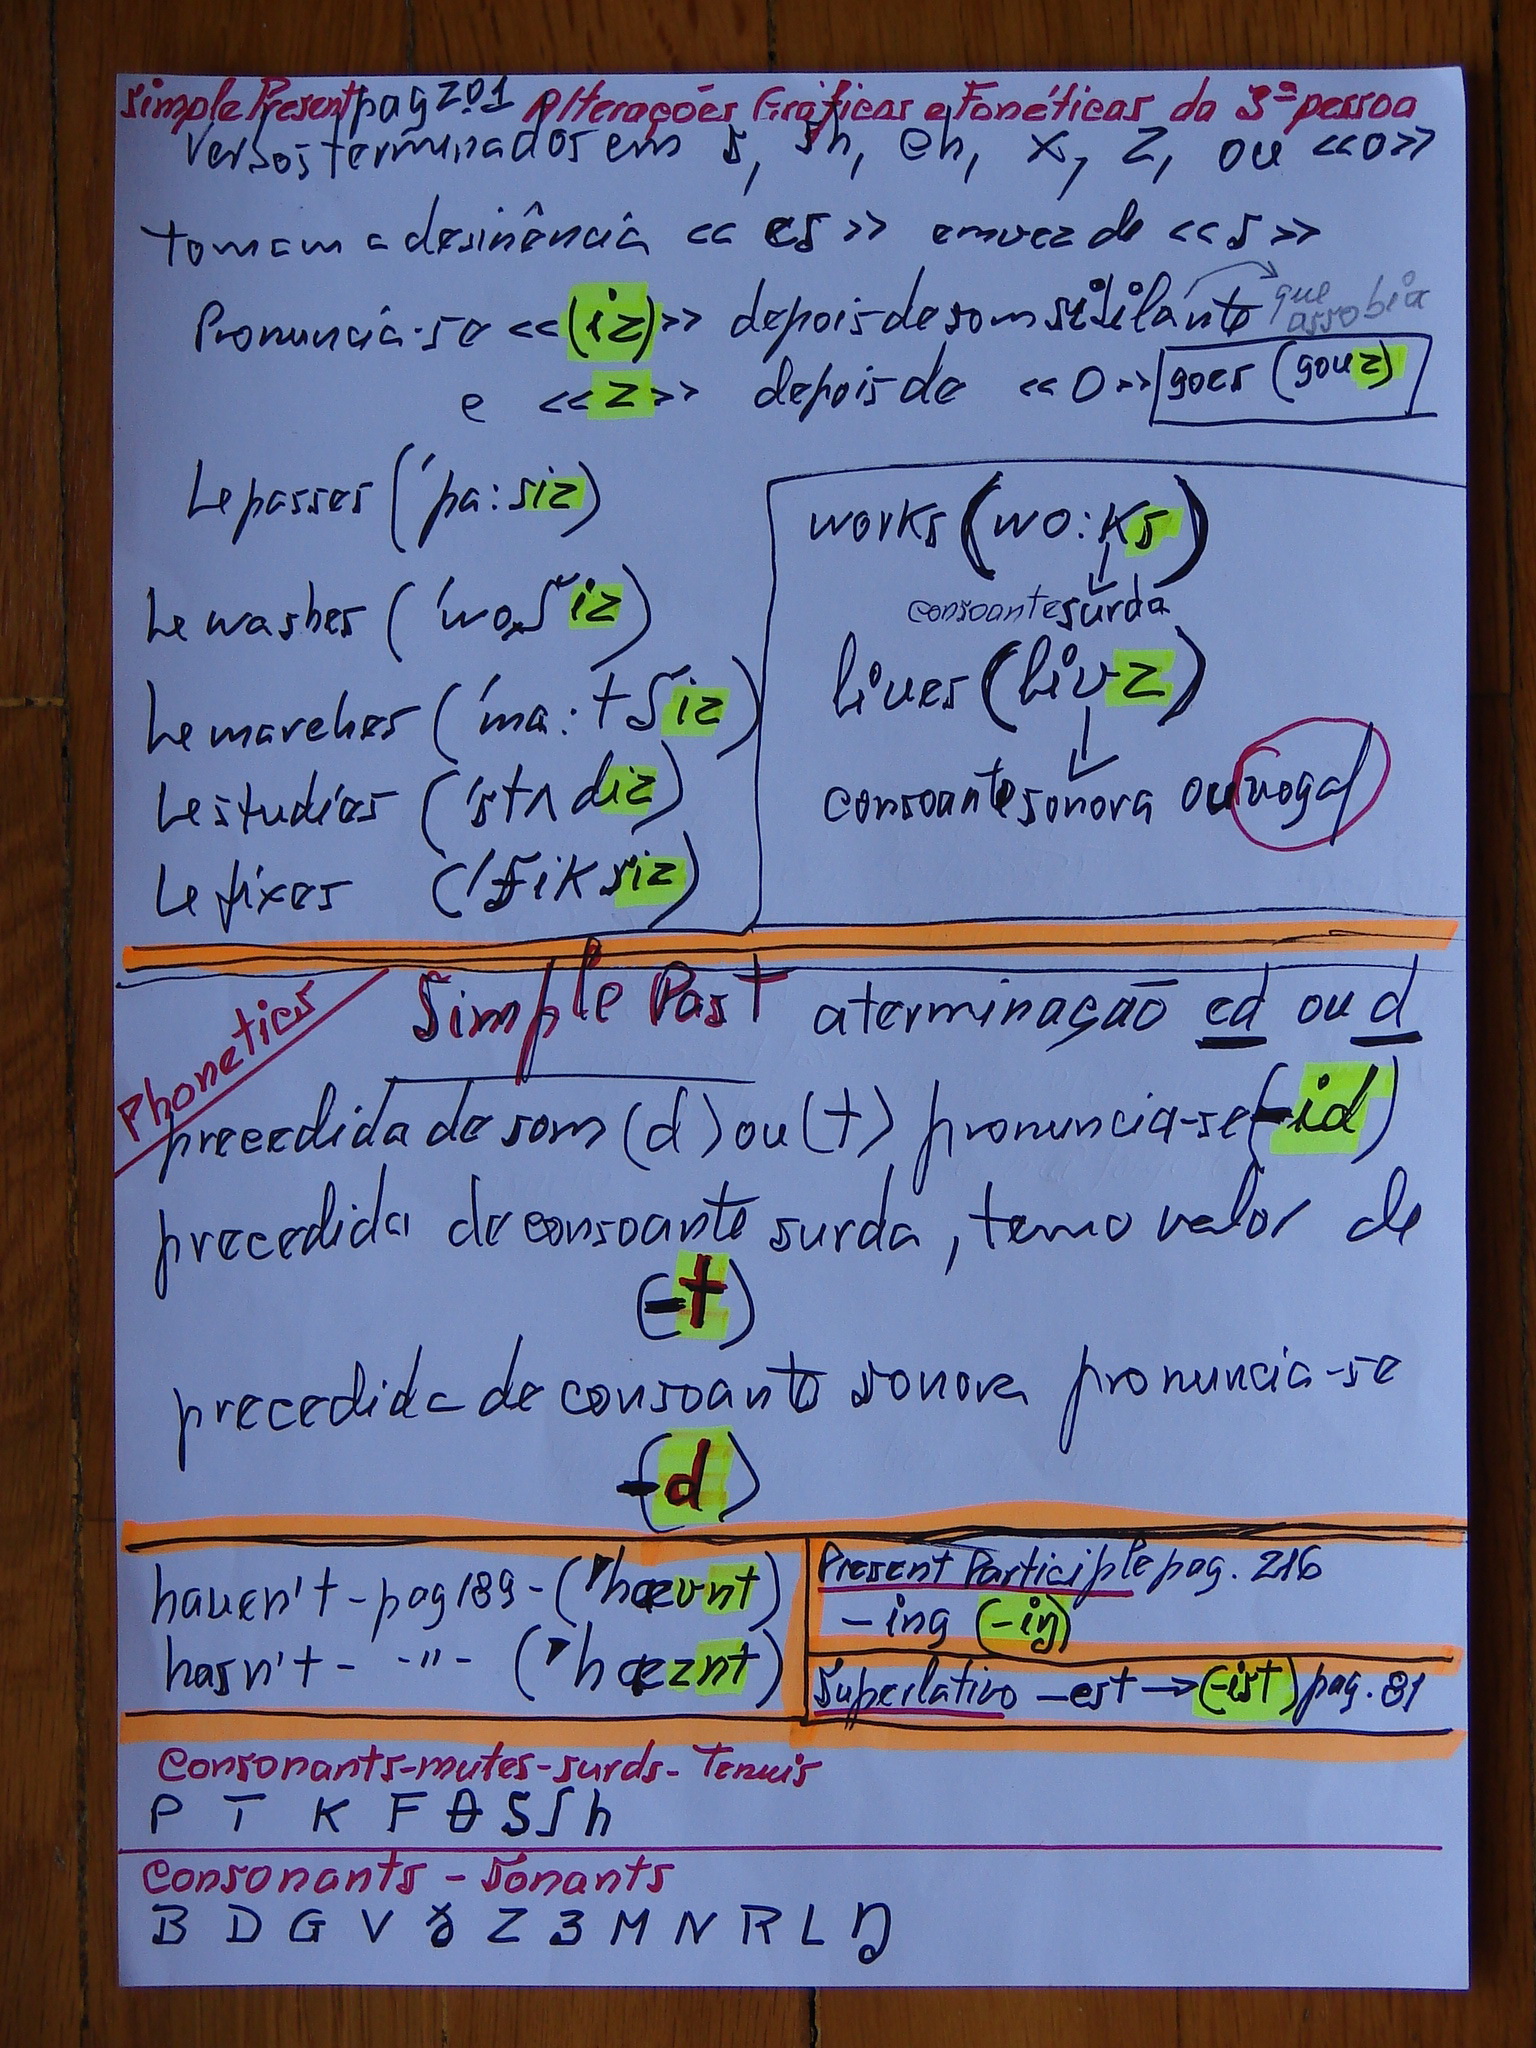 Simple Present pag 201 Alterações Gráficas e Fonéticas da 3ª pessoa
Verbos terminados em s, sh, ch, x, z, ou <<o>>
tomam a desinência <<es>> em vez de <<s>>
Pronuncia-se <<(iz)>> depois de som sibilante que assobia
e <<z>> depois de <<O>> goes (gouz)
↳ passes ('pa:siz)
↳ washes ('woʃiz)
↳ marches ('ma:tʃiz)
↳ studies ('stʌdiz)
↳ fixes ('fiksiz)
works (wo:ks)
consoante surda
lives (livz)
consoante sonora ou vogal
Phonetics
Simple Past a terminação ed ou d
precedida de som (d) ou (t) pronuncia-se (-id)
precedida de consoante surda, tem o valor de
(-t)
precedida de consoante sonora pronuncia-se
(-d)
haven't - pag 189 - ('hævnt)
hasn't - -"- ('hæznt)
Present Participle pag. 216
-ing (-iŋ)
Superlativo -est → (-ist) pag. 81
Consonants-mutes-surds-Tenuis
P T K F θ S ʃ h
Consonants - Sonants
B D G V ð Z ʒ M N R L ŋ